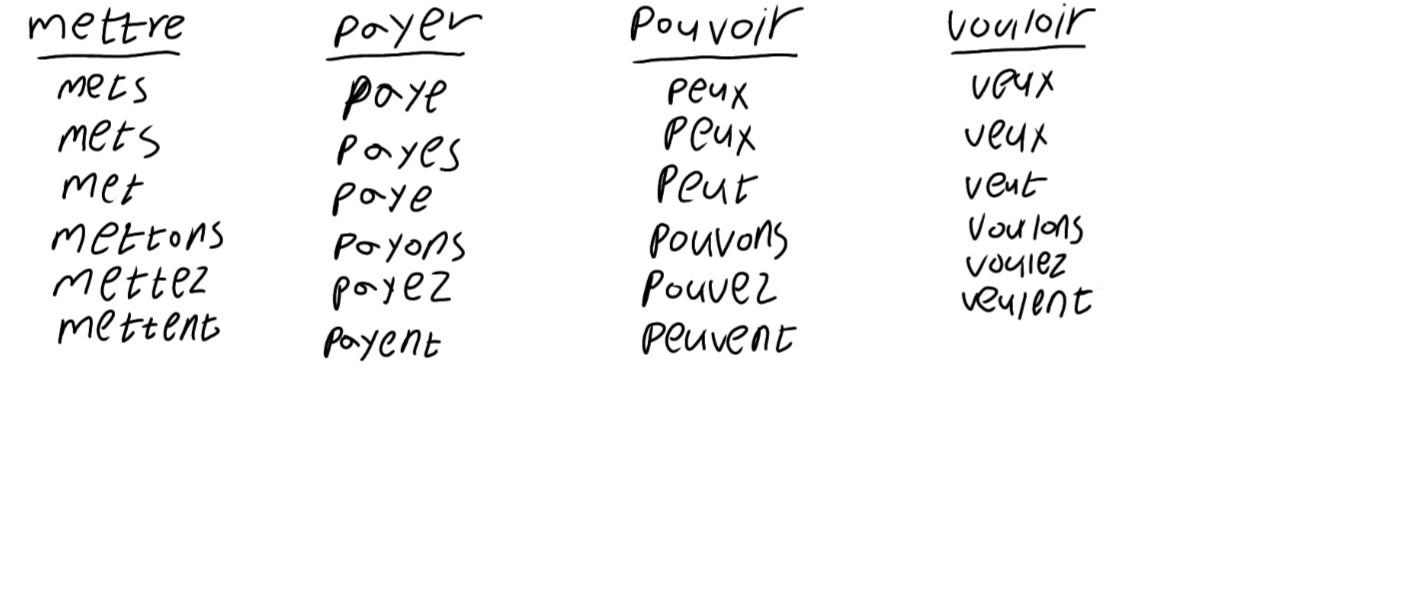 mettre payer pouvoir vouloir
mets paye peux veux
mets payes peux veux
met paye peut veut
mettons payons pouvons voulons
mettez payez pouvez voulez
mettent payent peuvent veulent